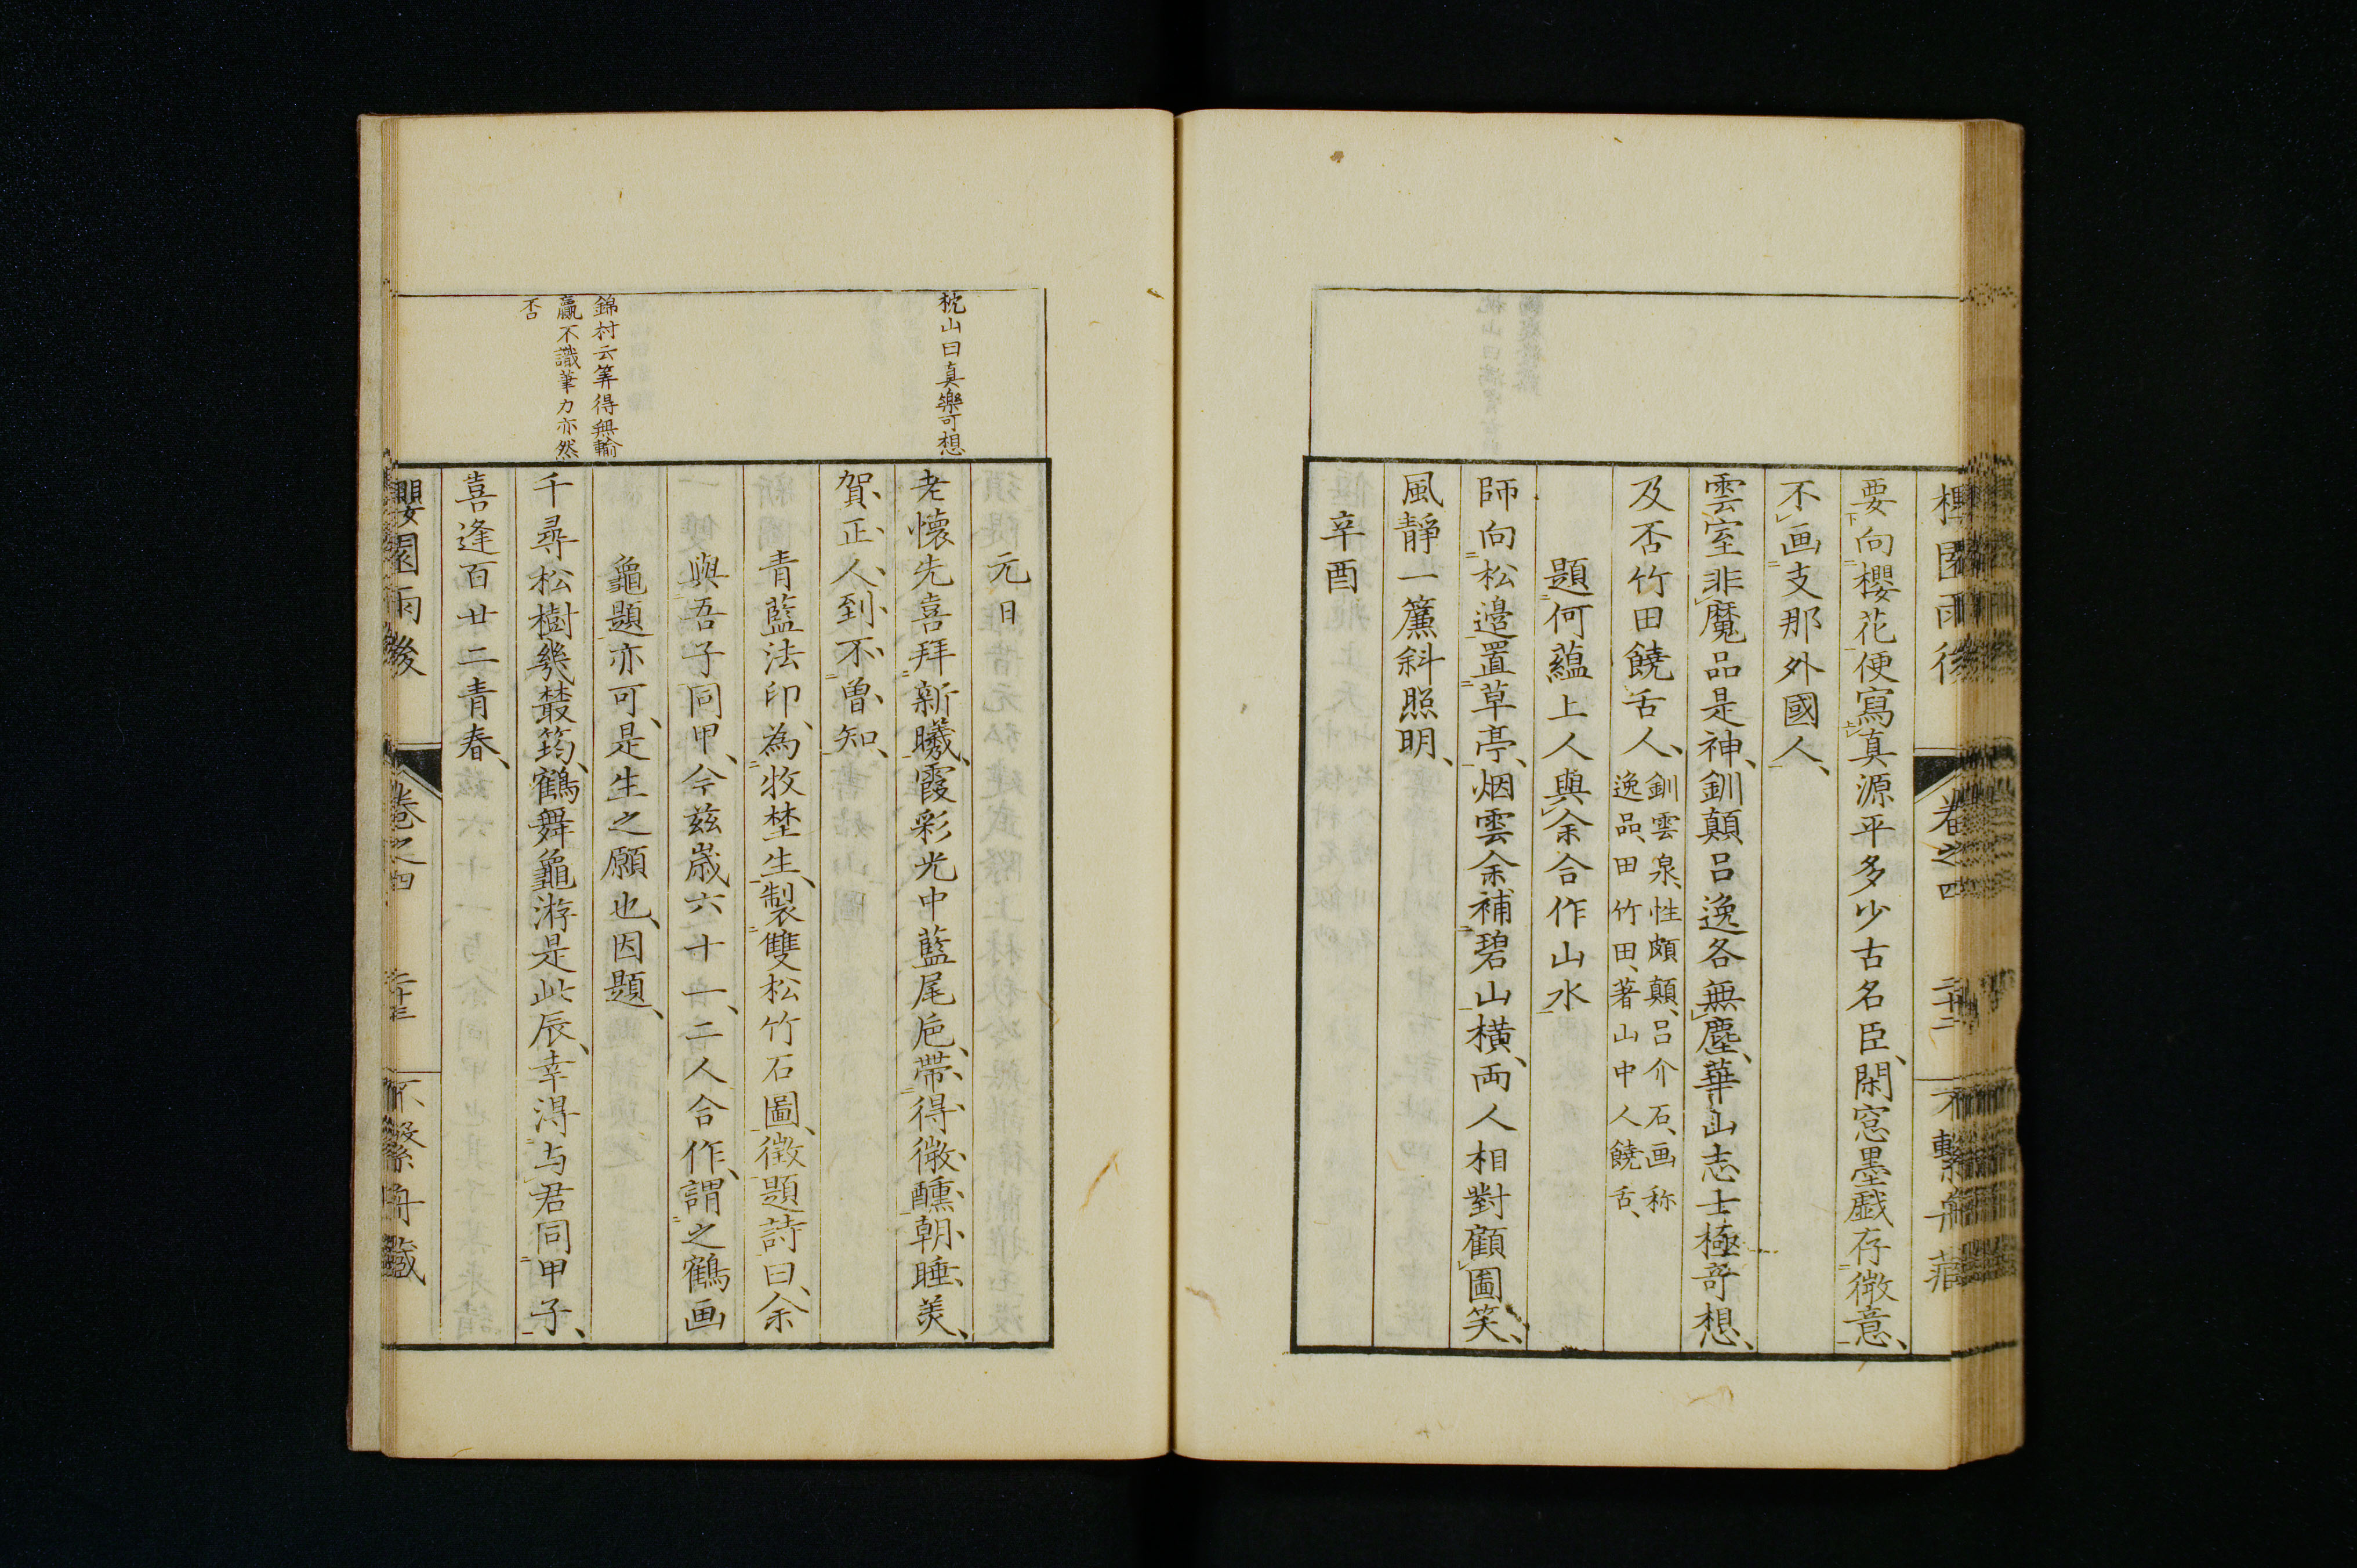 要向櫻花便寫真源平多少古名臣、閑窓墨戯存微意、
不画支那外國人、
雲室非魔品是神、釧顛呂逸各無塵、華山志士極奇想、
及否竹田饒舌人、
釧雲泉、性頗顛、呂介石、画称
逸品、田竹田、著山中人饒舌、
題何蘊上人與余合作山水
師向松邉置草亭、烟雲余補碧山横、両人相對顧圖笑、
風靜一簾斜照明、
辛酉
卷之四
二十二
元日
老懐先喜拜新曦、霞彩光中藍尾巵、帶得微醺朝睡美、
賀正人到不曽知、
枕山曰真樂可想
青藍法印、為牧埜生、製雙松竹石圖、徴題詩曰、余
與吾子同甲、今茲歳六十一、二人合作、謂之鶴画
龜題亦可、是生之願也、因題、
千尋松樹幾叢筠、鶴舞龜游是此辰、幸淂与君同甲子、
喜逢百廿二青春、
錦村云筭得無輸
贏不識筆力亦然
否
櫻園雨後
卷之四
二十三
不繋舟藏